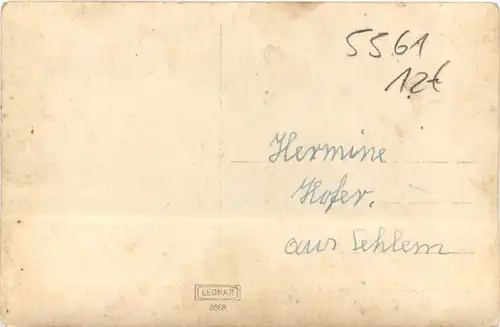 5561
12€
Hermine
Hofer,
aus Lehlem
LEONAR